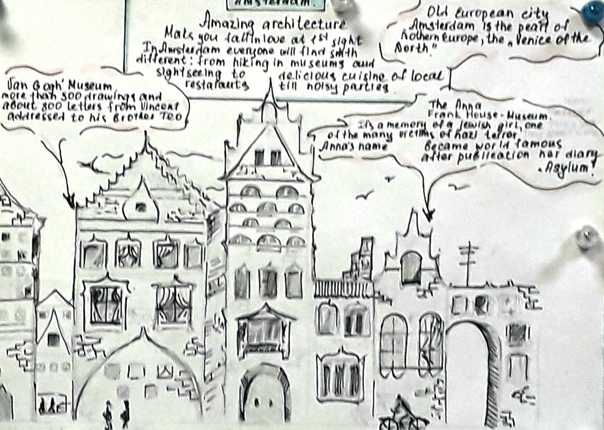 Amsterdam.
Amazing architecture
Maks you fall in love at 1st sight
In Amsterdam everyone will find smth
different: from hiking in museums and
sightseeing to delicious cuisine of local
restaurants till noisy parties
Old European city
Amsterdam is the pearl of
nothern Europe, the „Venice of the
North."
Van Gogh Museum
more than 500 drawings and
about 800 letters from Vincent
addressed to his Brother TEO
The Anna
Frank House-Museum.
It's a memory of a jewish girl, one
of the many victims of nazi terror.
Anna's name became world famous
after publication her diary
"Asylum"